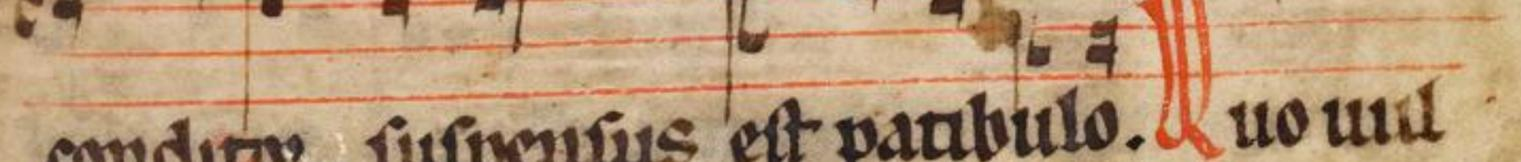 conditor suspensus est patibulo. Quo uul